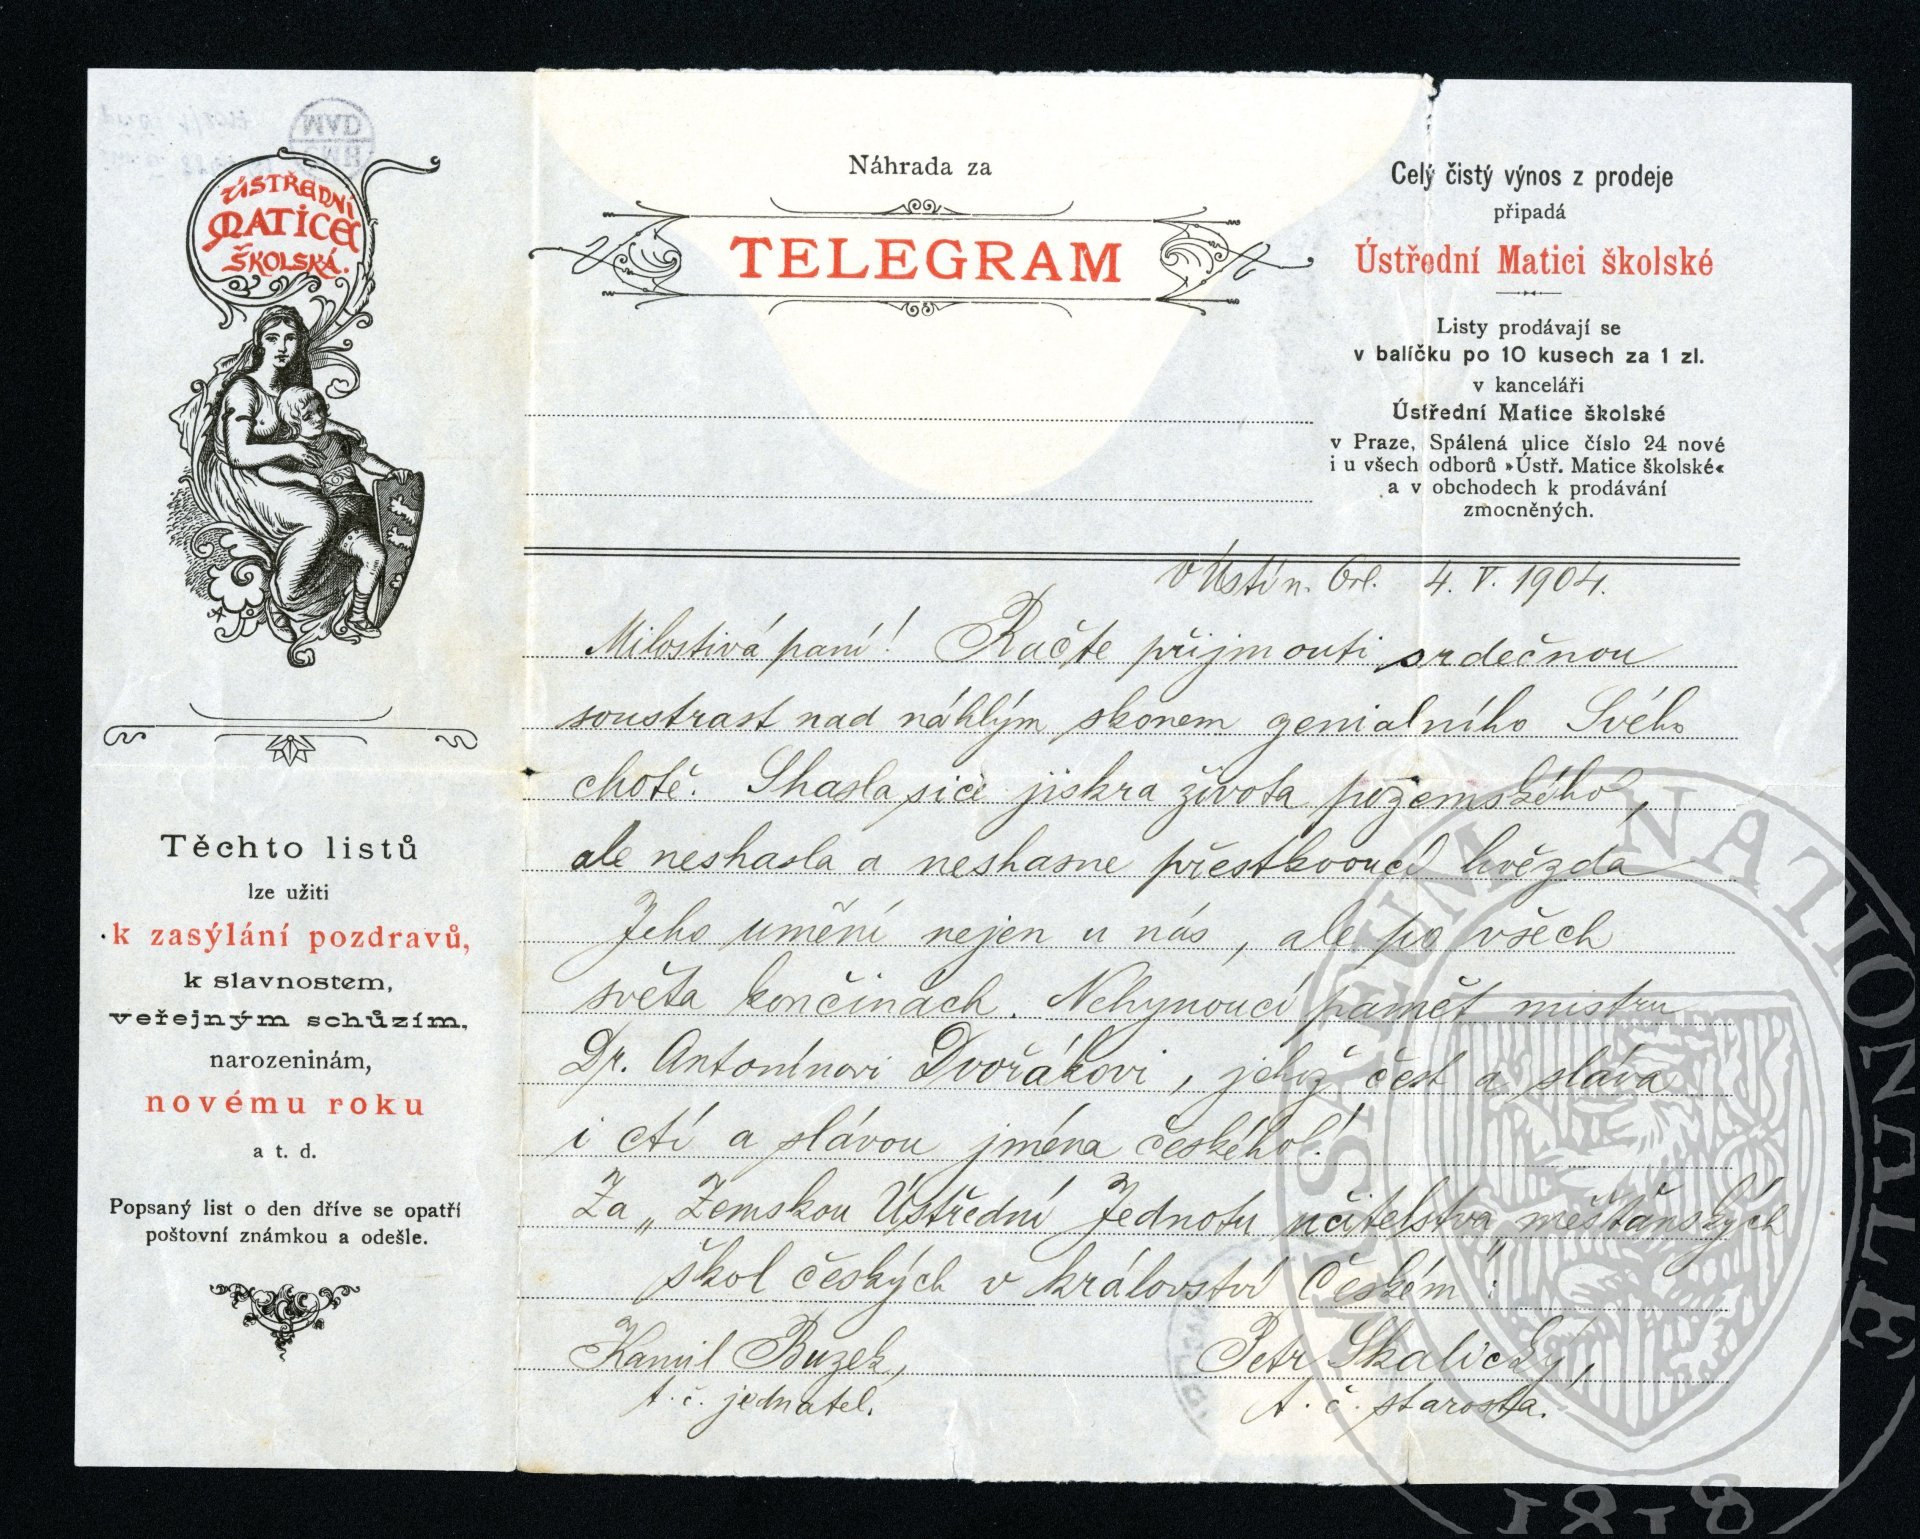 ÚSTŘEDNÍ
MATICE
ŠKOLSKÁ.
Těchto listů
lze užiti
k zasýlání pozdravů,
k slavnostem,
veřejným schůzím,
narozeninám,
novému roku
a t. d.
Popsaný list o den dříve se opatří
poštovní známkou a odešle.
Náhrada za
TELEGRAM
Celý čistý výnos z prodeje
připadá
Ústřední Matici školské
Listy prodávají se
v balíčku po 10 kusech za 1 zl.
v kanceláři
Ústřední Matice školské
v Praze, Spálená ulice číslo 24 nové
i u všech odborů »Ústř. Matice školské«
a v obchodech k prodávání
zmocněných.
V Ústí n. Orl. 4. V. 1904.
Milostivá paní! Račte přijmouti srdečnou
soustrast nad náhlým skonem genialního Svého
chotě. Shasla sice jiskra života pozemského,
ale neshasla a neshasne přestkvoucí hvězda
Jeho umění nejen u nás, ale po všech
světa končinách. Nehynoucí paměť mistru
Dr. Antonínovi Dvořákovi, jehož čest a sláva
i ctí a slávou jména českého!
Za „Zemskou Ústřední Jednotu učitelstva měšťanských
škol českých v království Českém":
Kamil Buzek, Petr Skalický,
t. č. jednatel. t. č. starosta.
MUSEUM NATIONALE
1818